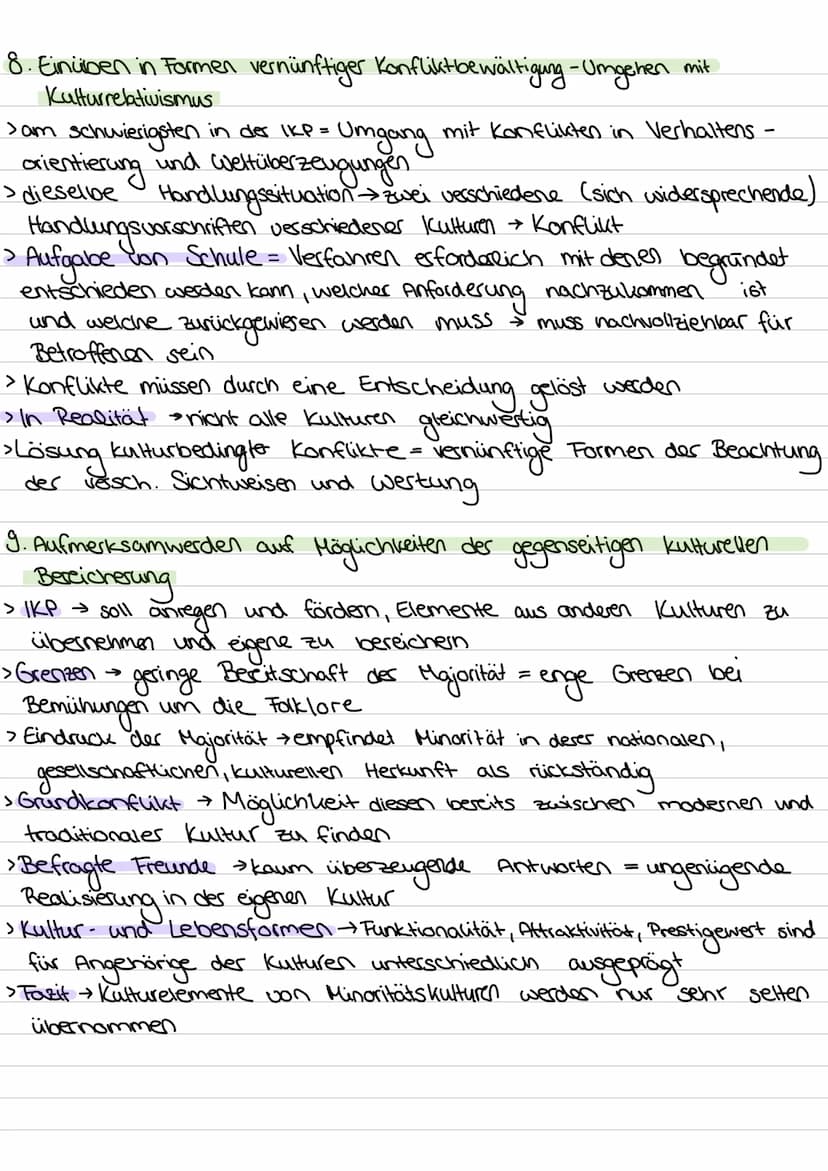 8. Einüben in Formen vernünftiger Konfliktbewältigung - Umgehen mit
Kulturrelativismus
> am schwierigsten in der IKP = Umgang mit Konflikten in Verhaltens -
orientierung und Weltüberzeugungen
> dieselbe Handlungssituation → zwei verschiedene (sich widersprechende)
Handlungsvorschriften verschiedener Kulturen → Konflikt
> Aufgabe von Schule = Verfahren erforderlich mit denen begründet
entschieden werden kann, welcher Anforderung nachzukommen ist
und welche zurückgewiesen werden muss → muss nachvollziehbar für
Betroffenen sein
> Konflikte müssen durch eine Entscheidung gelöst werden
> In Realität → nicht alle Kulturen gleichwertig
> Lösung kulturbedingter Konflikte = vernünftige Formen der Beachtung
der versch. Sichtweisen und Wertung
9. Aufmerksamwerden auf Möglichkeiten der gegenseitigen kulturellen
Bereicherung
> IKP → soll anregen und fördern, Elemente aus anderen Kulturen zu
übernehmen und eigene zu bereichern
> Grenzen → geringe Bereitschaft der Majorität = enge Grenzen bei
Bemühungen um die Folklore
> Eindruck der Majorität → empfindet Minorität in derer nationalen,
gesellschaftlichen, kulturellen Herkunft als rückständig
> Grundkonflikt → Möglichkeit diesen bereits zwischen modernen und
traditionaler Kultur zu finden
> Befragte Freunde → kaum überzeugende Antworten = ungenügende
Realisierung in der eigenen Kultur
> Kultur- und Lebensformen → Funktionalität, Attraktivität, Prestigewert sind
für Angehörige der Kulturen unterschiedlich ausgeprägt
> Fazit → Kulturelemente von Minoritätskulturen werden nur sehr selten
übernommen